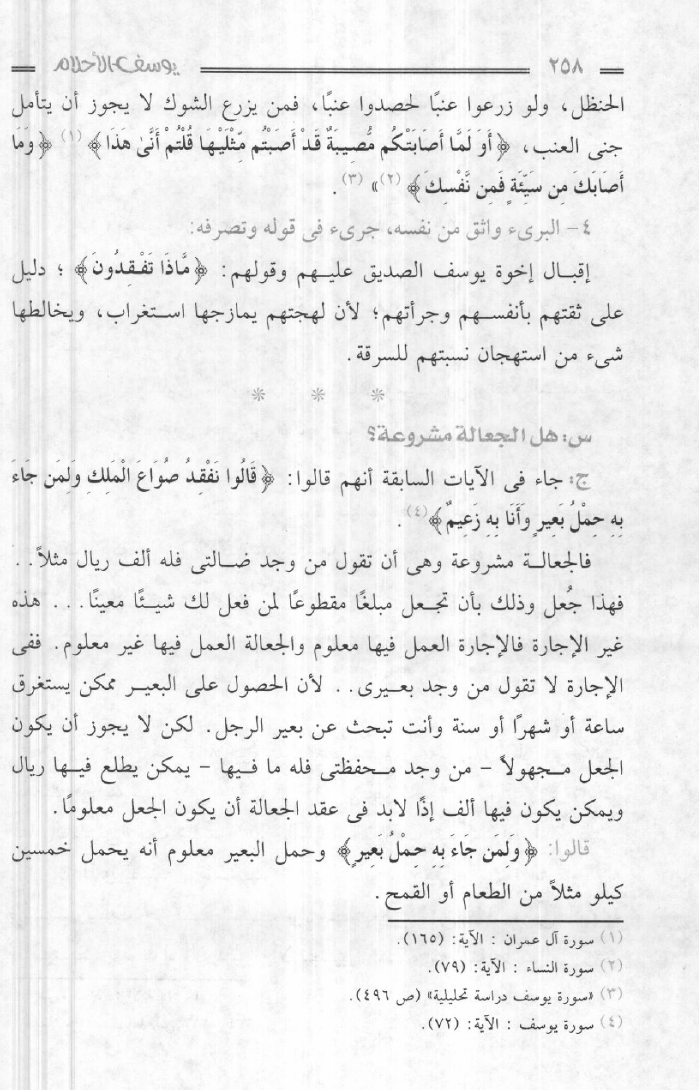 ٢٥٨ يوسف الأحلام
الحنظل، ولو زرعوا عنبًا لحصدوا عنبًا، فمن يزرع الشوك لا يجوز أن يتأمل
جنى العنب، ﴿أَوَ لَمَّا أَصَابَتْكُم مُّصِيبَةٌ قَدْ أَصَبْتُم مِّثْلَيْهَا قُلْتُمْ أَنَّىٰ هَذَا﴾ (١) ﴿وَمَا
أَصَابَكَ مِن سَيِّئَةٍ فَمِن نَّفْسِكَ﴾ (٢)» (٣).
٤ - البرىء واثق من نفسه، جرىء فى قوله وتصرفه:
إقبال إخوة يوسف الصديق عليهم وقولهم: ﴿مَّاذَا تَفْقِدُونَ﴾؛ دليل
على ثقتهم بأنفسهم وجرأتهم؛ لأن لهجتهم يمازجها استغراب، ويخالطها
شىء من استهجان نسبتهم للسرقة.
* * *
س: هل الجعالة مشروعة؟
ج: جاء فى الآيات السابقة أنهم قالوا: ﴿قَالُوا نَفْقِدُ صُوَاعَ الْمَلِكِ وَلِمَن جَاءَ
بِهِ حِمْلُ بَعِيرٍ وَأَنَا بِهِ زَعِيمٌ﴾ (٤).
فالجعالة مشروعة وهى أن تقول من وجد ضالتى فله ألف ريال مثلاً..
فهذا جُعل وذلك بأن تجعل مبلغًا مقطوعًا لمن فعل لك شيئًا معينًا... هذه
غير الإجارة فالإجارة العمل فيها معلوم والجعالة العمل فيها غير معلوم. ففى
الإجارة لا تقول من وجد بعيرى.. لأن الحصول على البعير ممكن يستغرق
ساعة أو شهرًا أو سنة وأنت تبحث عن بعير الرجل. لكن لا يجوز أن يكون
الجعل مجهولاً - من وجد محفظتى فله ما فيها - يمكن يطلع فيها ريال
ويمكن يكون فيها ألف إذًا لابد فى عقد الجعالة أن يكون الجعل معلومًا.
قالوا: ﴿وَلِمَن جَاءَ بِهِ حِمْلُ بَعِيرٍ﴾ وحمل البعير معلوم أنه يحمل خمسين
كيلو مثلاً من الطعام أو القمح.
(١) سورة آل عمران : الآية: (١٦٥).
(٢) سورة النساء : الآية: (٧٩).
(٣) «سورة يوسف دراسة تحليلية» (ص ٤٩٦).
(٤) سورة يوسف : الآية: (٧٢).